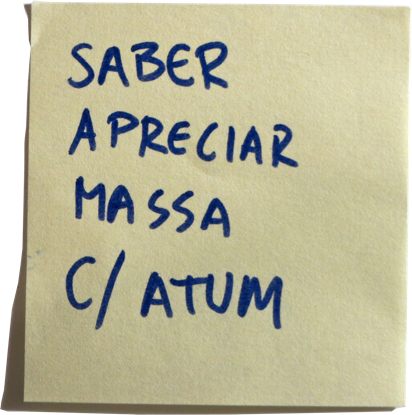 SABER
APRECIAR
MASSA
C/ ATUM